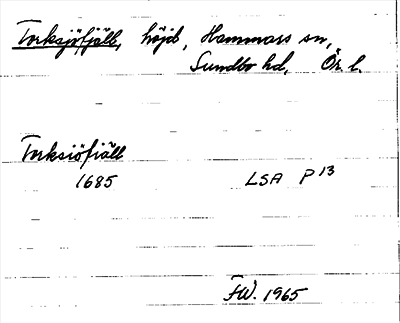 Torksjöfjäll, höjd, Hammars sn,
Sundbo hd, Ör l.
Torksiöfiäll
1685 LSA P 13
FW. 1965